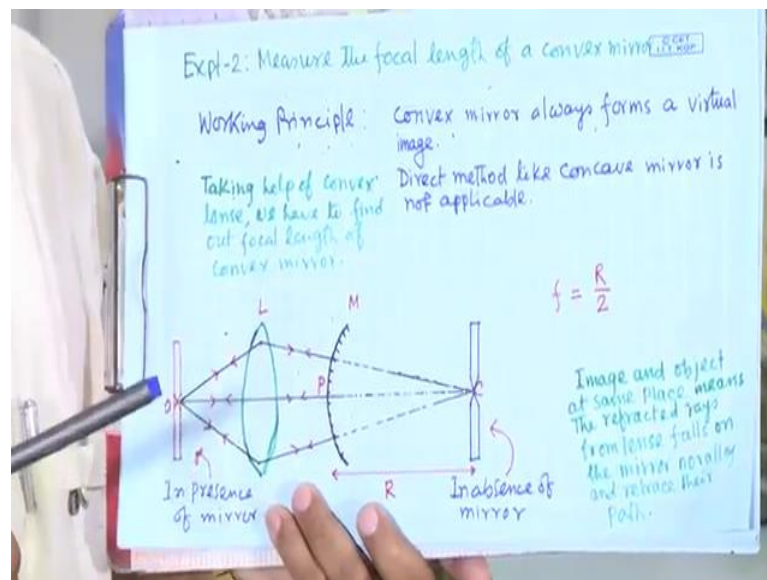 Expt-2: Measure the focal length of a convex mirror
Working Principle: Convex mirror always forms a virtual
image.
Direct method like Concave mirror is
not applicable.
Taking help of convex
lense, we have to find
out focal length of
convex mirror.
f = R/2
L
M
O
P
C
R
In presence
of mirror
In absence of
mirror
Image and object
at same place means
The refracted rays
from lense falls on
the mirror norally
and retrace their
path.